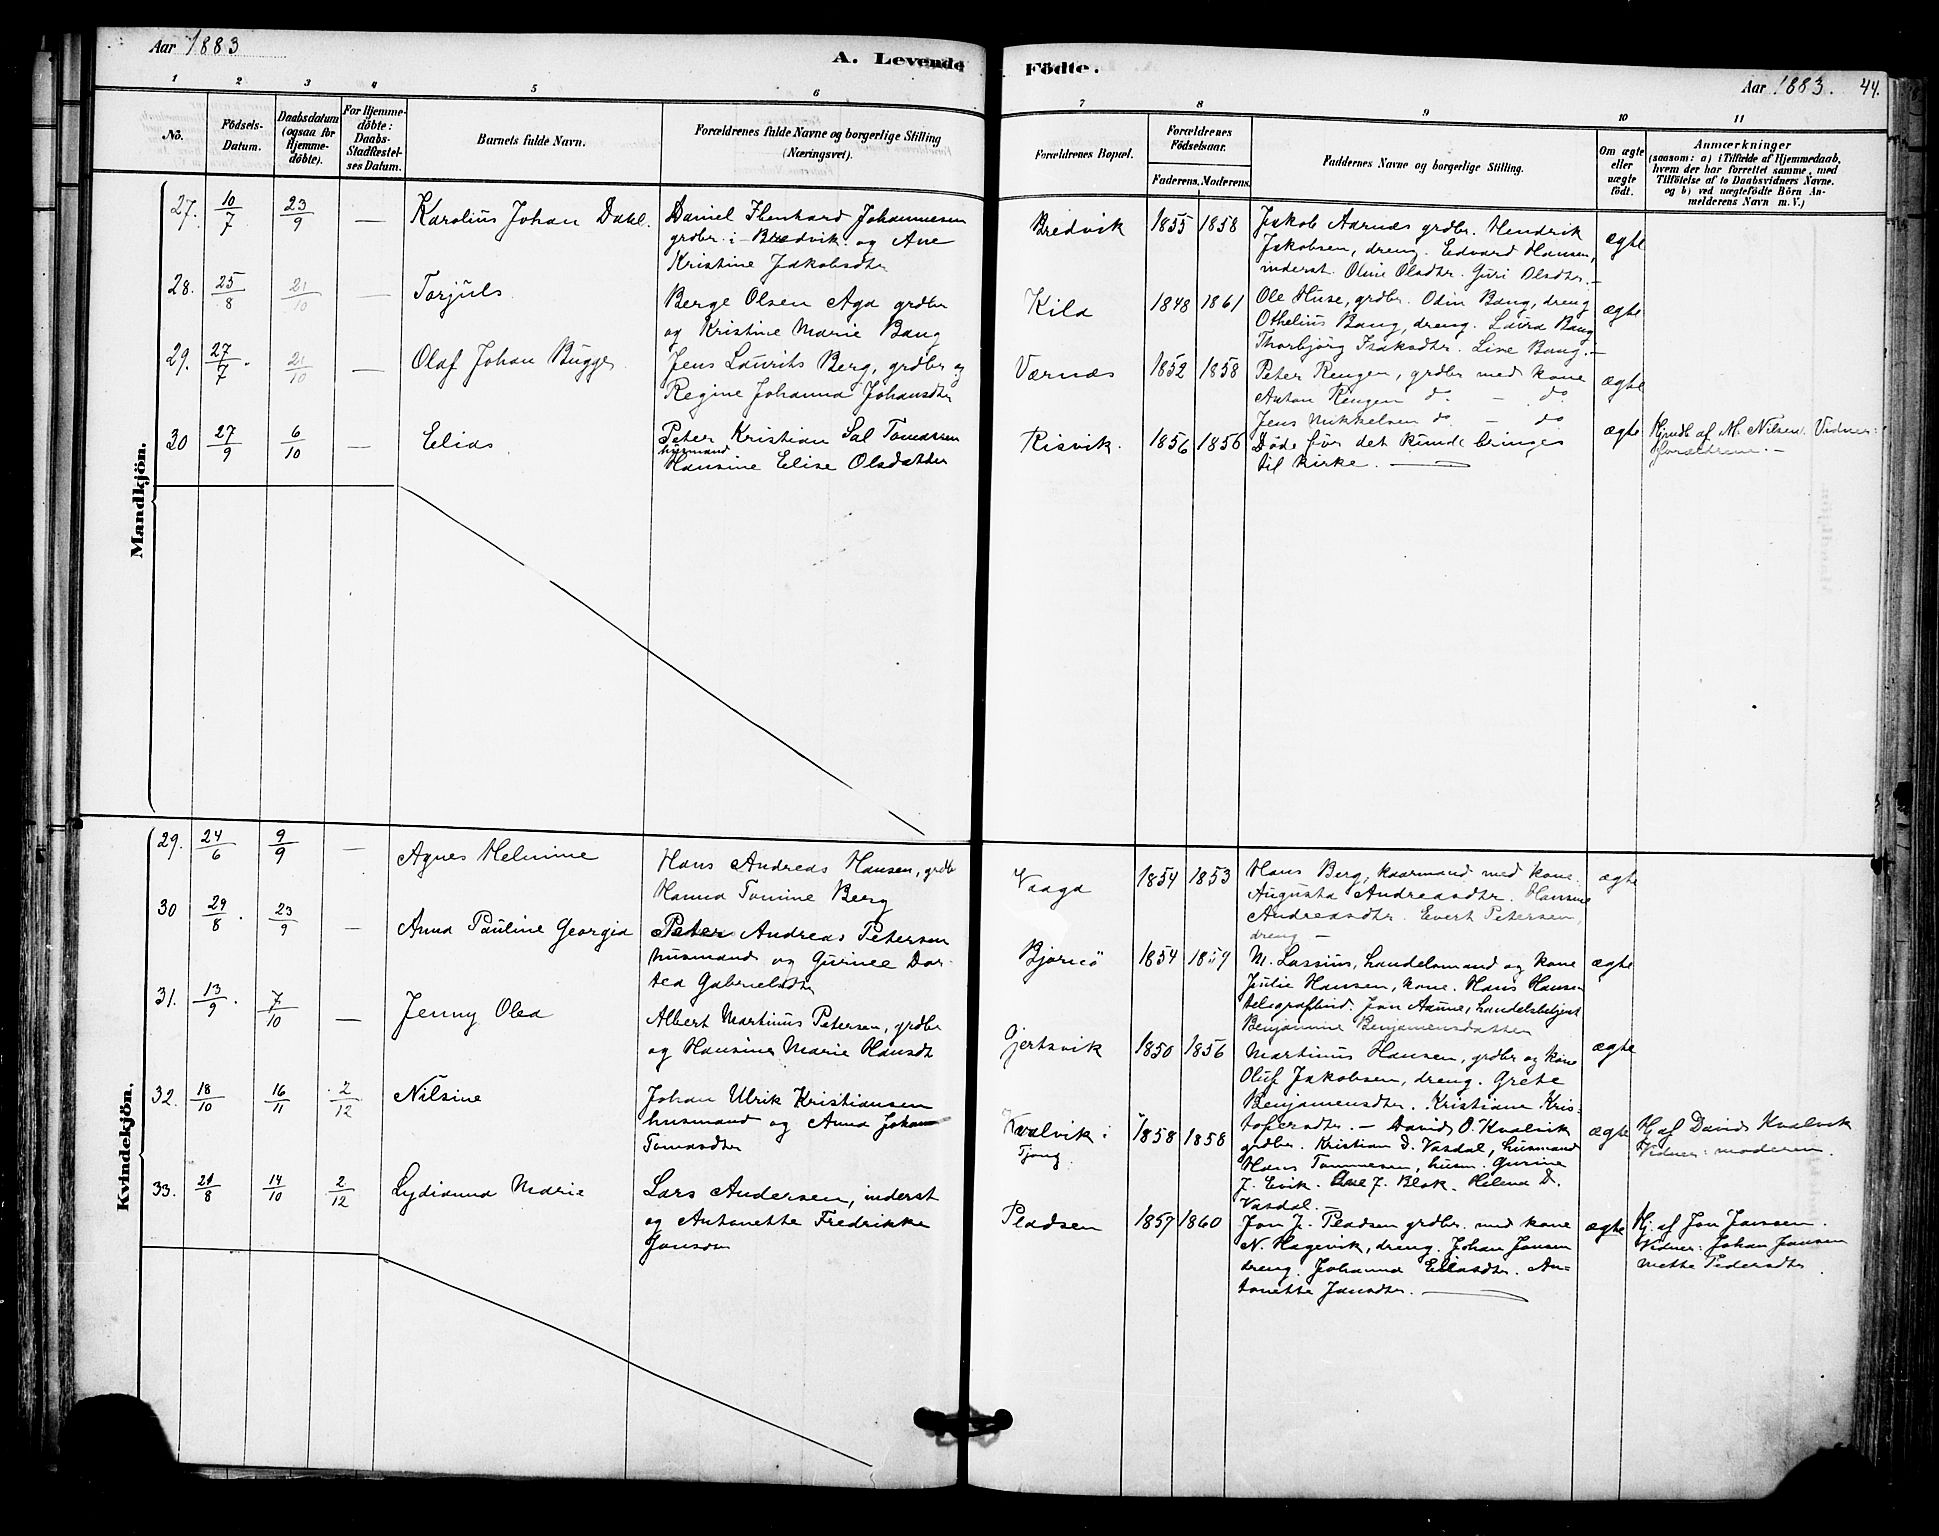 Aar 1883
A. Levende
Födte.
Aar 1883. 44.
1 2 3 4 5 6 7 8 9 10 11
No.
Födsels-Datum.
Daabsdatum (ogsaa for Hjemme-döbte).
For Hjemme-döbte: Daabs-Stadfæstel-ses Datum.
Barnets fulde Navn.
Forældrenes fulde Navne og borgerlige Stilling
(Næringsvei).
Forældrenes Bopæl.
Forældrenes Födselsaar.
Faderens. Moderens.
Faddernes Navne og borgerlige Stilling.
Om ægte eller uægte födt.
Anmærkninger
(saasom: a) i Tilfælde af Hjemmedaab,
hvem der har forrettet samme, med
Tilföielse af to Daabsvidners Navne.
og b) ved uægtefödte Börn An-
melderens Navn m. V.)
Mandkjön.
27. 10/7 23/9 — Karolius Johan Dahl.
Daniel Johannesen
grdbr. i Bredvik og Ane
Kristine Jakobsdtr
Bredvik 1855 1858
Jakob Aarnes grdbr. Hendrik
Jakobsen, dreng. Edvard Hansen,
inderst. Oline Olsdtr. Guri Olsdtr. —
ægte
28. 25/8 21/10 — Torjuls
Berge Olsen Aga grdbr
og Kristine Marie Bang
Kila 1848 1861
Ole Huse, grdbr. Odin Bang, dreng
Othelius Bang, dreng. Laura Bang
Thorbjörg Isaksdtr. Live Bang. —
ægte
29. 27/7 21/10 — Olaf Johan Bugge
Jens Laurits Berg, grdbr og
Regine Johanna Johansdtr
Værnes 1852 1858
Peter Rengen, grdbr med kone
Anton Rengen do — do
Jens Mikkelsen do — do
ægte
30 27/9 6/10 — Elias
Peter Kristian Sal Tomassen
husmand
Hansine Elise Olsdatter
Risvik. 1856 1856
Döde för det kunde bringes
til kirke. —
ægte
Hjmdb. af M. Nilsen. Vidner:
forældrene. —
Kvindekjön.
29. 24/6 9/9 — Agnes Helmine
Hans Andreas Hansen, grdbr
Hanna Tomine Berg
Vaaga 1854 1853
Hans Berg, kaarmand med kone.
Augusta Andreasdtr. Hansine
Andreasdtr. Evert Petersen,
dreng —
ægte
30 29/8 23/9 — Anna Pauline Georgia
Peter Andreas Petersen
husmand og Gurine Dor-
tea Gabrielsdtr
Bjærnö 1854 1859
M. Lassius, handelsmand og kone
Julie Hansen, kone. Hans Hansen
telegrafbud. Jon Aanne, handelsbetjent
Benjamine Benjaminsdatter
ægte
31. 13/9 7/10 — Jenny Olea
Albert Martinus Petersen, grdbr
og Hansine Marie Hansdt
Gjertsvik 1850 1856
Martinus Hansen, grdbr og kone
Oluf Jakobsen, dreng. Grete
Benjamensdtr. Kristiane Kris-
tofersdtr. —
ægte
32. 18/10 16/11 2/12 Nilsine
Johan Ulrik Kristiansen
husmand og Anna Johan
Tomasdtr
Kvalvik i
Tjong. 1858 1858
David O. Kvalvik
grdbr. Kristian D. Vasdal, husmand
Hans Tommesen, husm. Gurine
J. Evik. Ane J. Blok. Helena D.
Vasdal. —
ægte
Hj. af David Kvalvik
Vidner: moderen.
33. 21/8 14/10 2/12 Lydianna Marie
Lars Andersen, inderst
og Antonette Fredrikke
Jonsdtr
Pladsen 1857 1860
Jon J. Pladsen grdbr. med kone
N. Hagevik, dreng. Johan Jonsen
dreng. Johanna Eliasdtr. An-
tonette Jonsdtr. —
ægte
Hj. af Jon Jonsen.
Vidner: Johan Jonsen
Mette Pedersdtr